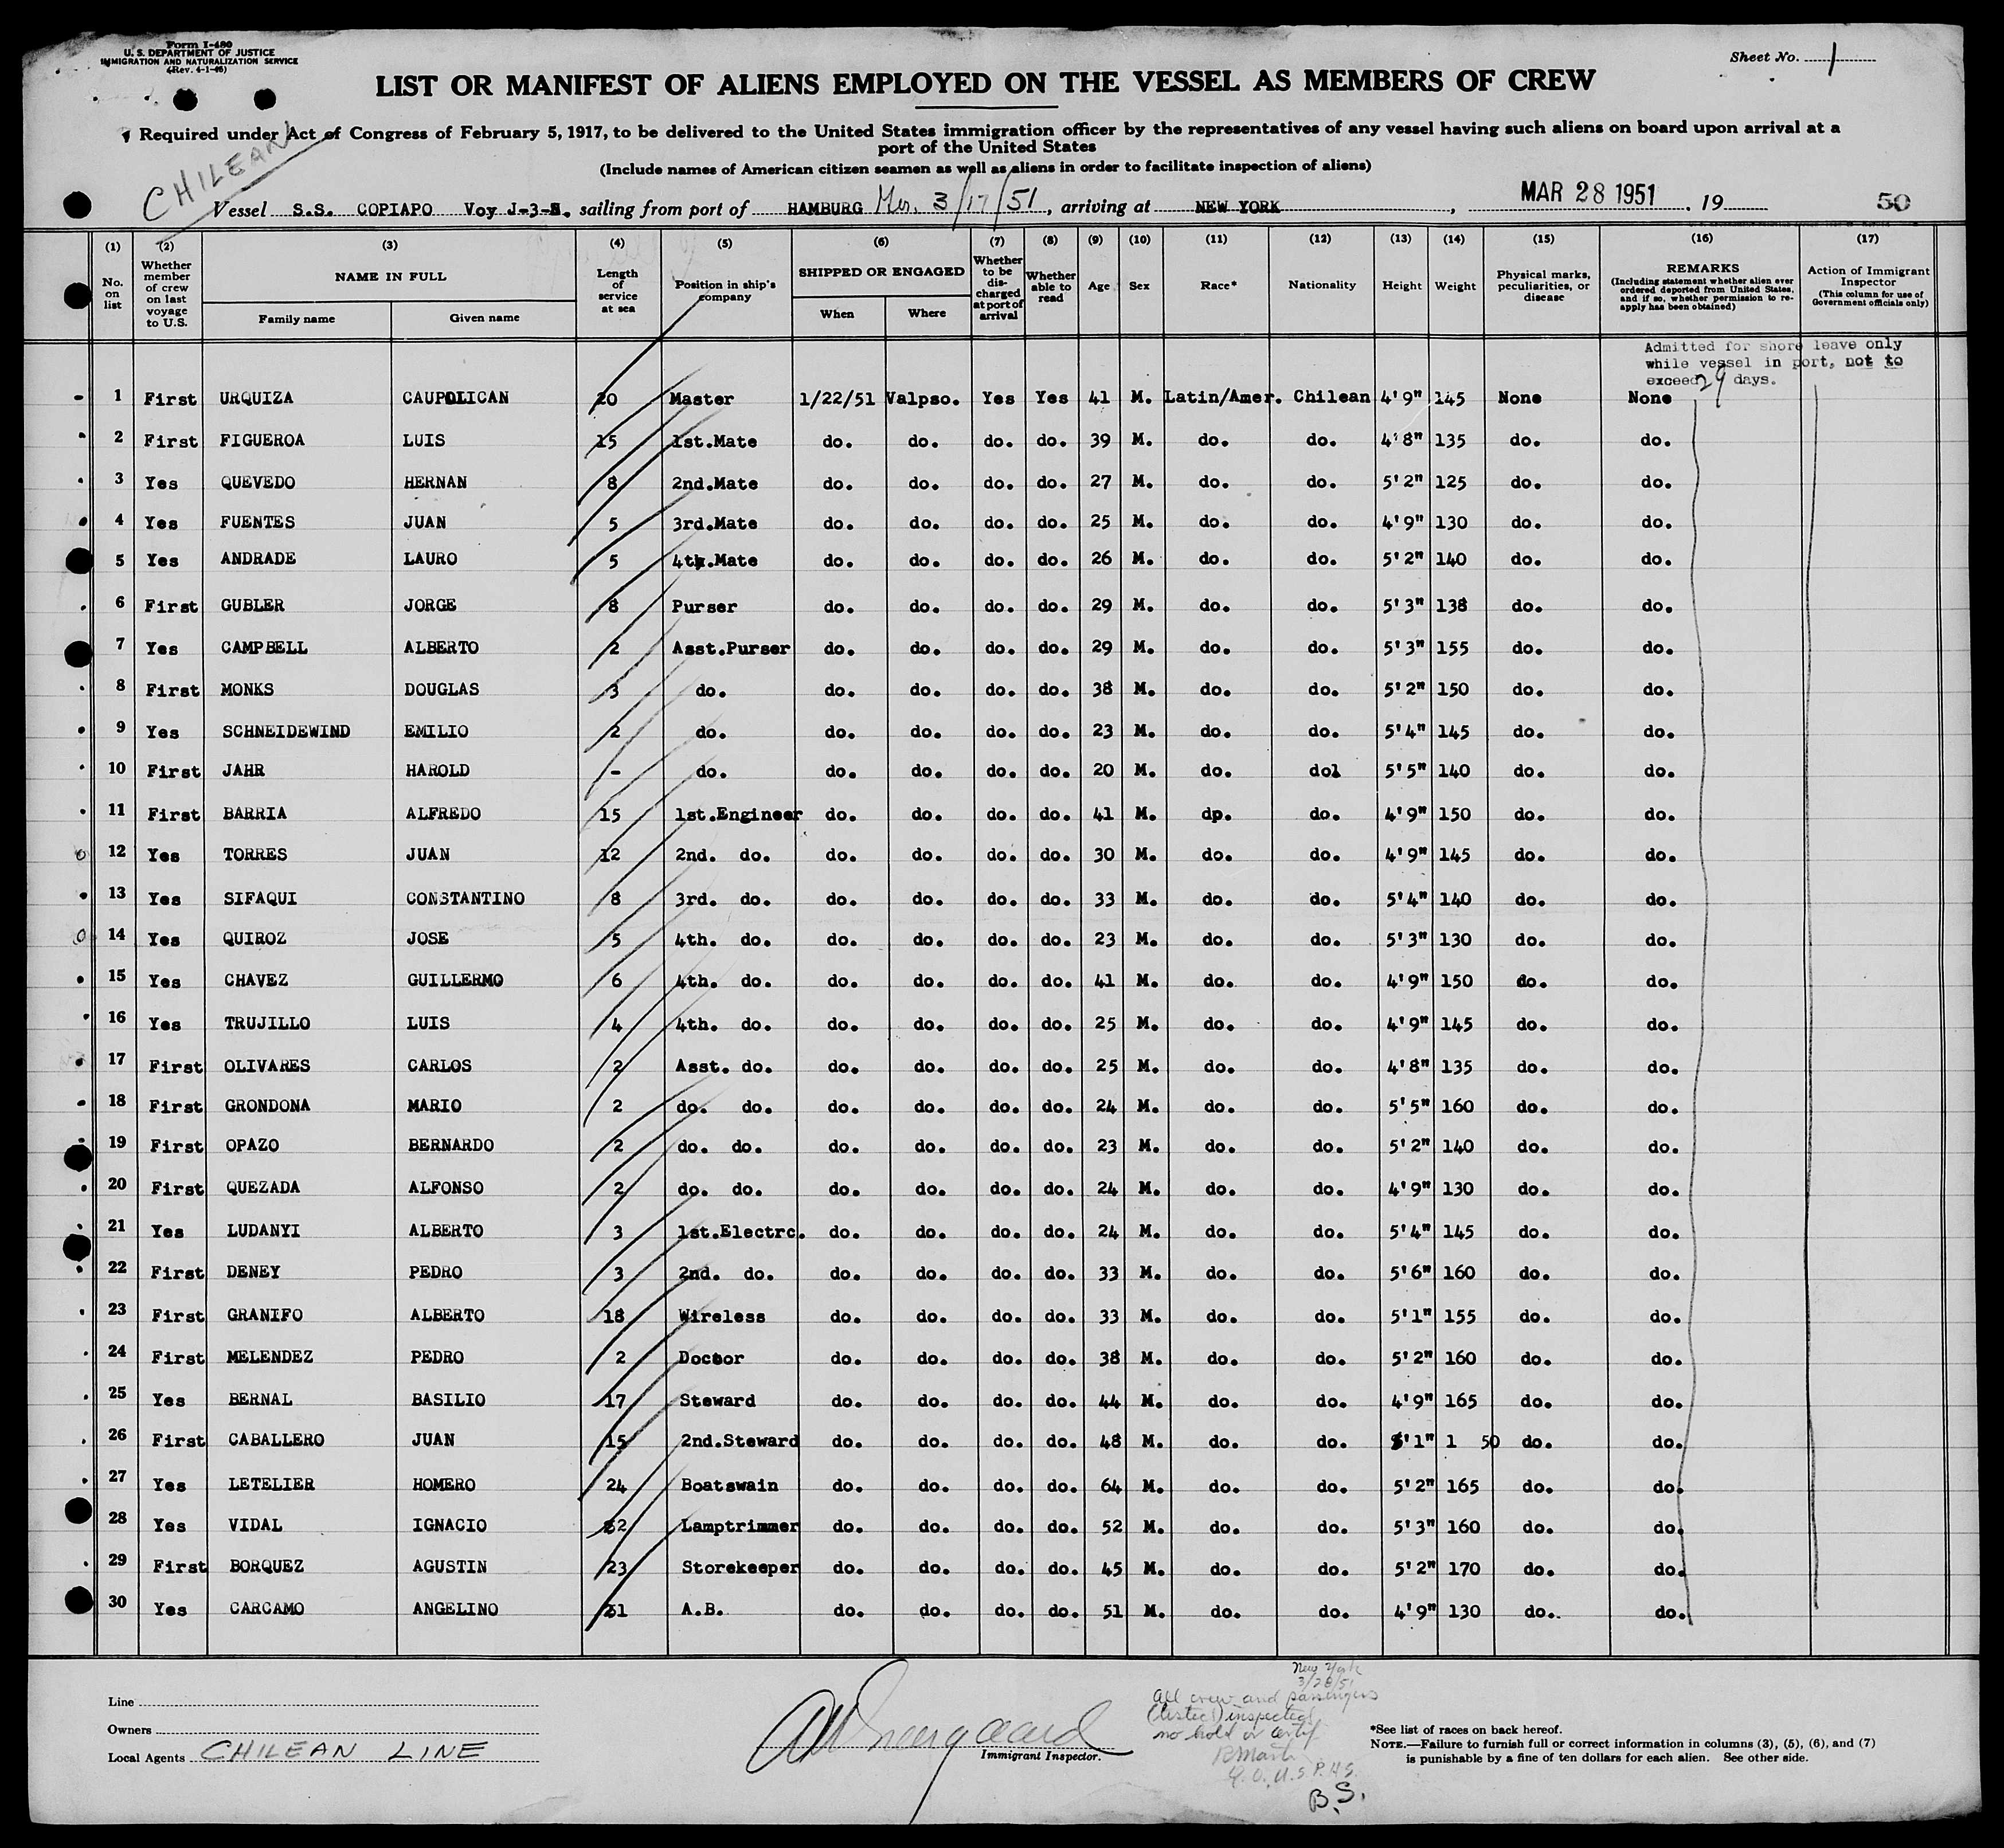 Form I-480
U. S. DEPARTMENT OF JUSTICE
IMMIGRATION AND NATURALIZATION SERVICE
(Rev. 4-1-46)
Sheet No. 1
LIST OR MANIFEST OF ALIENS EMPLOYED ON THE VESSEL AS MEMBERS OF CREW
Required under Act of Congress of February 5, 1917, to be delivered to the United States immigration officer by the representatives of any vessel having such aliens on board upon arrival at a
port of the United States
(Include names of American citizen seamen as well as aliens in order to facilitate inspection of aliens)
CHILEAN
Vessel S.S. COPIAPO Voy J-3-S. sailing from port of HAMBURG 3/17/51, arriving at NEW YORK, MAR 28 1951, 19 50
(1) (2) (3) (4) (5) (6) (7) (8) (9) (10) (11) (12) (13) (14) (15) (16) (17)
No. on list Whether member of crew on last voyage to U.S. NAME IN FULL Family name Given name Length of service at sea Position in ship's company SHIPPED OR ENGAGED When Where Whether to be discharged at port of arrival Whether able to read Age Sex Race* Nationality Height Weight Physical marks, peculiarities, or disease REMARKS (Including statement whether alien ever ordered deported from United States, and if so, whether permission to reapply has been obtained) Action of Immigrant Inspector (This column for use of Government officials only)
Admitted for shore leave only
while vessel in port, not to
exceed 29 days.
1 First URQUIZA CAUPOLICAN 20 Master 1/22/51 Valpso. Yes Yes 41 M. Latin/Amer. Chilean 4'9" 145 None None
2 First FIGUEROA LUIS 15 1st.Mate do. do. do. do. 39 M. do. do. 4'8" 135 do. do.
3 Yes QUEVEDO HERNAN 8 2nd.Mate do. do. do. do. 27 M. do. do. 5'2" 125 do. do.
4 Yes FUENTES JUAN 5 3rd.Mate do. do. do. do. 25 M. do. do. 4'9" 130 do. do.
5 Yes ANDRADE LAURO 5 4th.Mate do. do. do. do. 26 M. do. do. 5'2" 140 do. do.
6 First GUBLER JORGE 8 Purser do. do. do. do. 29 M. do. do. 5'3" 138 do. do.
7 Yes CAMPBELL ALBERTO 2 Asst.Purser do. do. do. do. 29 M. do. do. 5'3" 155 do. do.
8 First MONKS DOUGLAS 3 do. do. do. do. do. 38 M. do. do. 5'2" 150 do. do.
9 Yes SCHNEIDEWIND EMILIO 2 do. do. do. do. do. 23 M. do. do. 5'4" 145 do. do.
10 First JAHR HAROLD - do. do. do. do. do. 20 M. do. dol 5'5" 140 do. do.
11 First BARRIA ALFREDO 15 1st.Engineer do. do. do. do. 41 M. dp. do. 4'9" 150 do. do.
12 Yes TORRES JUAN 12 2nd. do. do. do. do. do. 30 M. do. do. 4'9" 145 do. do.
13 Yes SIFAQUI CONSTANTINO 8 3rd. do. do. do. do. do. 33 M. do. do. 5'4" 140 do. do.
14 Yes QUIROZ JOSE 5 4th. do. do. do. do. do. 23 M. do. do. 5'3" 130 do. do.
15 Yes CHAVEZ GUILLERMO 6 4th. do. do. do. do. do. 41 M. do. do. 4'9" 150 do. do.
16 Yes TRUJILLO LUIS 4 4th. do. do. do. do. do. 25 M. do. do. 4'9" 145 do. do.
17 First OLIVARES CARLOS 2 Asst. do. do. do. do. do. 25 M. do. do. 4'8" 135 do. do.
18 First GRONDONA MARIO 2 do. do. do. do. do. do. 24 M. do. do. 5'5" 160 do. do.
19 First OPAZO BERNARDO 2 do. do. do. do. do. do. 23 M. do. do. 5'2" 140 do. do.
20 First QUEZADA ALFONSO 2 do. do. do. do. do. do. 24 M. do. do. 4'9" 130 do. do.
21 Yes LUDANYI ALBERTO 3 1st.Electrc. do. do. do. do. 24 M. do. do. 5'4" 145 do. do.
22 First DENEY PEDRO 3 2nd. do. do. do. do. do. 33 M. do. do. 5'6" 160 do. do.
23 First GRANIFO ALBERTO 18 Wireless do. do. do. do. 33 M. do. do. 5'1" 155 do. do.
24 First MELENDEZ PEDRO 2 Doctor do. do. do. do. 38 M. do. do. 5'2" 160 do. do.
25 Yes BERNAL BASILIO 17 Steward do. do. do. do. 44 M. do. do. 4'9" 165 do. do.
26 First CABALLERO JUAN 15 2nd.Steward do. do. do. do. 48 M. do. do. 5'1" 1 50 do. do.
27 Yes LETELIER HOMERO 24 Boatswain do. do. do. do. 64 M. do. do. 5'2" 165 do. do.
28 Yes VIDAL IGNACIO Lamptrimmer do. do. do. do. 52 M. do. do. 5'3" 160 do. do.
29 First BORQUEZ AGUSTIN 23 Storekeeper do. do. do. do. 45 M. do. do. 5'2" 170 do. do.
30 Yes CARCAMO ANGELINO A.B. do. do. do. do. 51 M. do. do. 4'9" 130 do.. do.
Line
Owners
Local Agents CHILEAN LINE
Immigrant Inspector.
New York
3/28/51
All crew and passengers
(listed) inspected
no hold or certif.
U.S.P.H.S.
B.S.
*See list of races on back hereof.
NOTE.—Failure to furnish full or correct information in columns (3), (5), (6), and (7)
is punishable by a fine of ten dollars for each alien. See other side.